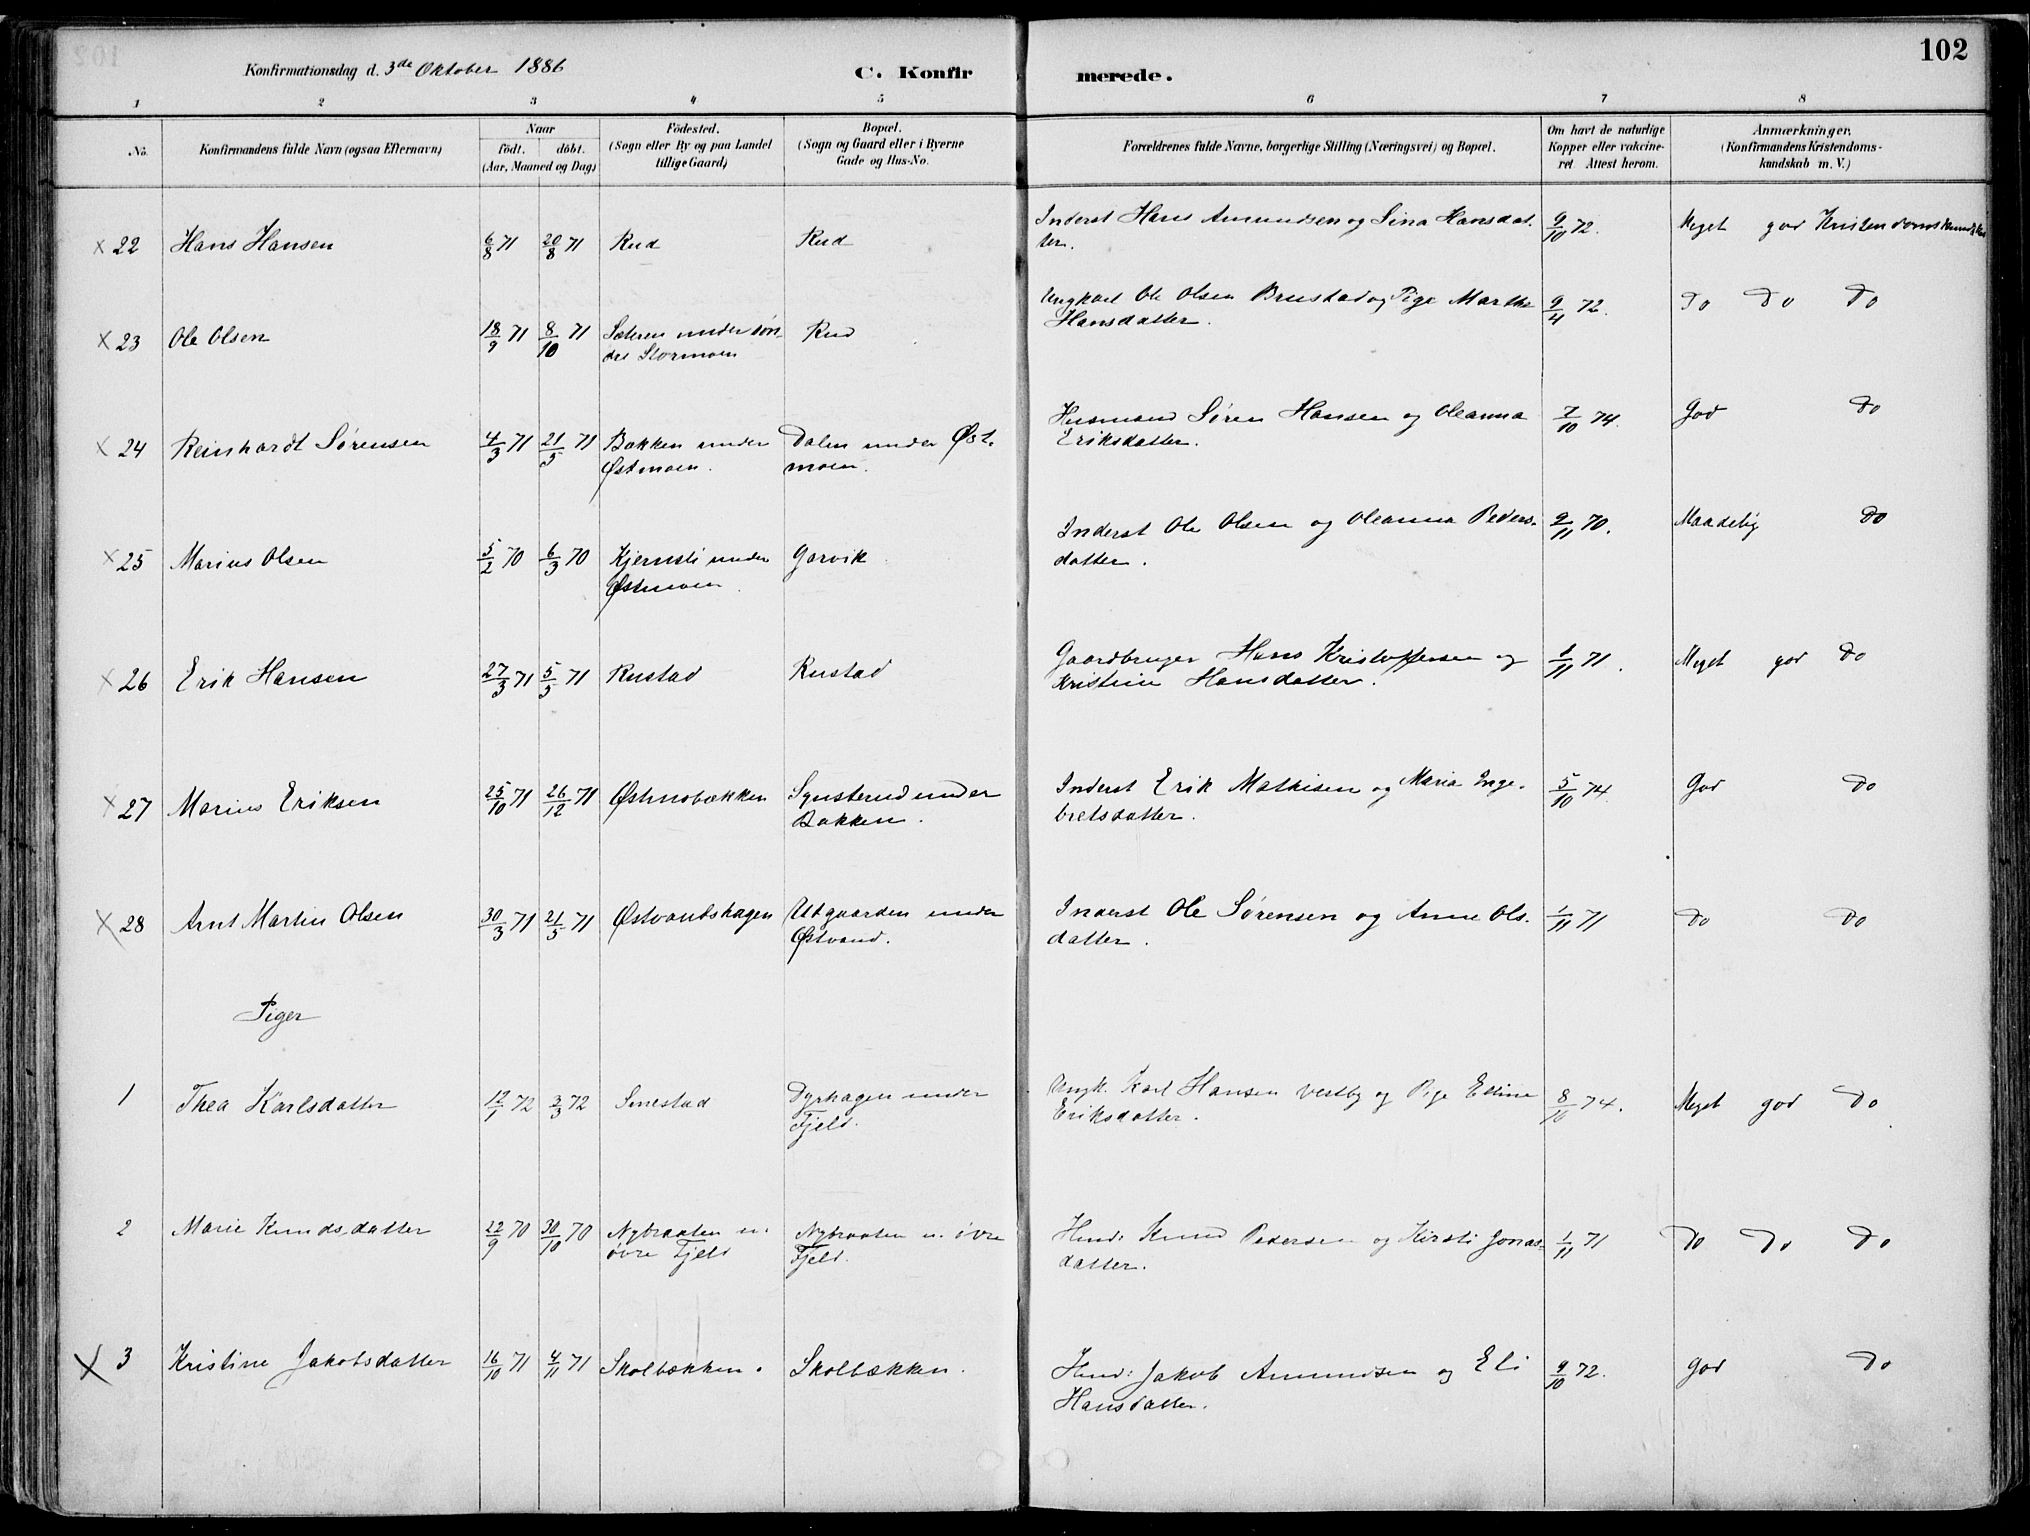 102
Konfirmationsdag d. 3de Oktober 1886
C. Konfir
merede.
1 2 3 4 5 6 7 8
No.
Konfirmandens fulde Navn (ogsaa Efternavn)
Naar
födt. döbt.
(Aar, Maaned og Dag)
Födested.
(Sogn eller By og paa Landet
tillige Gaard)
Bopæl.
(Sogn og Gaard eller i Byerne
Gade og Hus-No.
Forældrenes fulde Navne, borgerlige Stilling (Næringsvei) og Bopæl.
Om havt de naturlige
Kopper eller vakcine-
ret. Attest herom.
Anmærkninger.
(Konfirmandens Kristendoms-
kundskab m. V.)
x 22 Hans Hansen 6/8 71 20/8 71 Rud Rud Inderst Hans Amundsen og Lina Hansdat- 9/10 72. Meget god Kristendomskundskab
ter.
x 23 Ole Olsen 18/9 71 8/10 71 Sæteren under søn- Rud Ungkarl Ole Olsen Brustad og Pige Marthe 9/4 72. Do Do Do
dre Stormoen Hansdatter.
x 24 Reinhardt Sørensen 4/3 71 21/5 71 Bakken under Dalen under Øst- Husmand Søren Hansen og Oleanna 7/10 74. God Do
Østmoen. moen. Eriksdatter.
x 25 Marius Olsen 5/2 70 6/3 70 Kjernsli under Garvik Inderst Ole Olsen og Oleanna Peders- 9/11 70. Maadelig Do
Østmoen datter.
x 26 Erik Hansen 27/3 71 5/5 71 Rustad Rustad Gaardbruger Hans Kristoffersen og 1/11 71. Meget god Do
Kristine Hansdatter.
x 27 Marius Eriksen 25/10 71 26/12 71 Østmobækken Synsterud under Inderst Erik Mathisen og Maria Inge- 5/10 74. God Do
Bakken. bretsdatter.
x 28 Arnt Martin Olsen 30/3 71 21/5 71 Østvandshagen Utgaarden under Inderst Ole Sørensen og Anne Ols- 1/11 71 Do Do
Østvand. datter.
Piger
1 Thea Karlsdatter 12/1 72 3/3 72 Smestad Dyrhagen under Ungk. Karl Hansen Vestby og Pige Elline 8/10 74. Meget god Do
Fjeld. Eriksdatter.
2 Marie Knudsdatter 22/9 70 30/10 70 Nybraaten u. Nybraaten u. övre Husm: Knud Pedersen og Kirsti Jonas- 1/11 71 Do Do Do
övre Fjeld Fjeld. datter.
x 3 Kristine Jakobsdatter 16/10 71 4/11 71 Skolbækken. Skolbækken. Husm: Jakob Amundsen og Eli 9/10 72. God Do
Hansdatter.